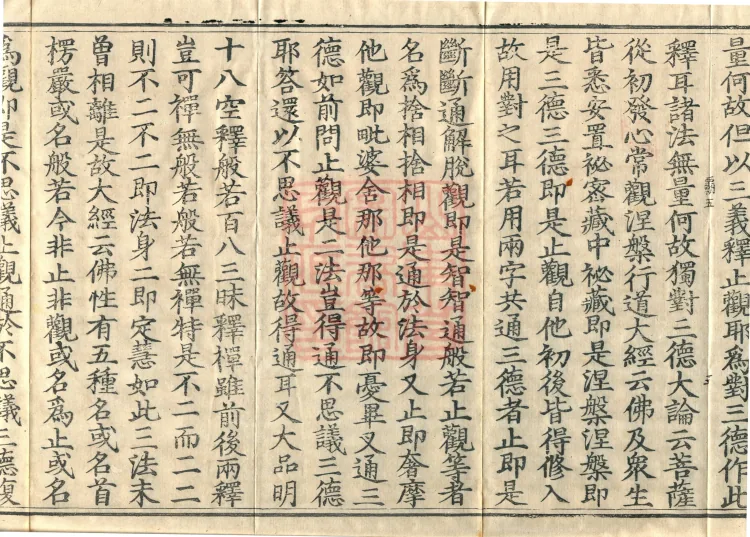 量何故但以三義釋止觀耶為對三德作此
釋耳諸法無量何故獨對三德大論云菩薩
從初發心常觀涅槃行道大經云佛及衆生
皆悉安置祕密藏中祕藏即是涅槃涅槃即
是三德三德即是止觀自他初後皆得修入
故用對之耳若用兩字共通三德者止即是
斷斷通解脫觀即是智智通般若止觀等者
名為捨相捨相即是通於法身又止即奢摩
他觀即毗婆舍那他那等故即憂畢叉通三
德如前問止觀是二法豈得通不思議三德
耶答還以不思議止觀故得通耳又大品明
十八空釋般若百八三昧釋禪雖前後兩釋
豈可禪無般若般若無禪特是不二而二二
則不二不二即法身二即定慧如此三法未
曾相離是故大經云佛性有五種名或名首
楞嚴或名般若今非止非觀或名為止或名
為觀即是不思議止觀通於不思議三德復